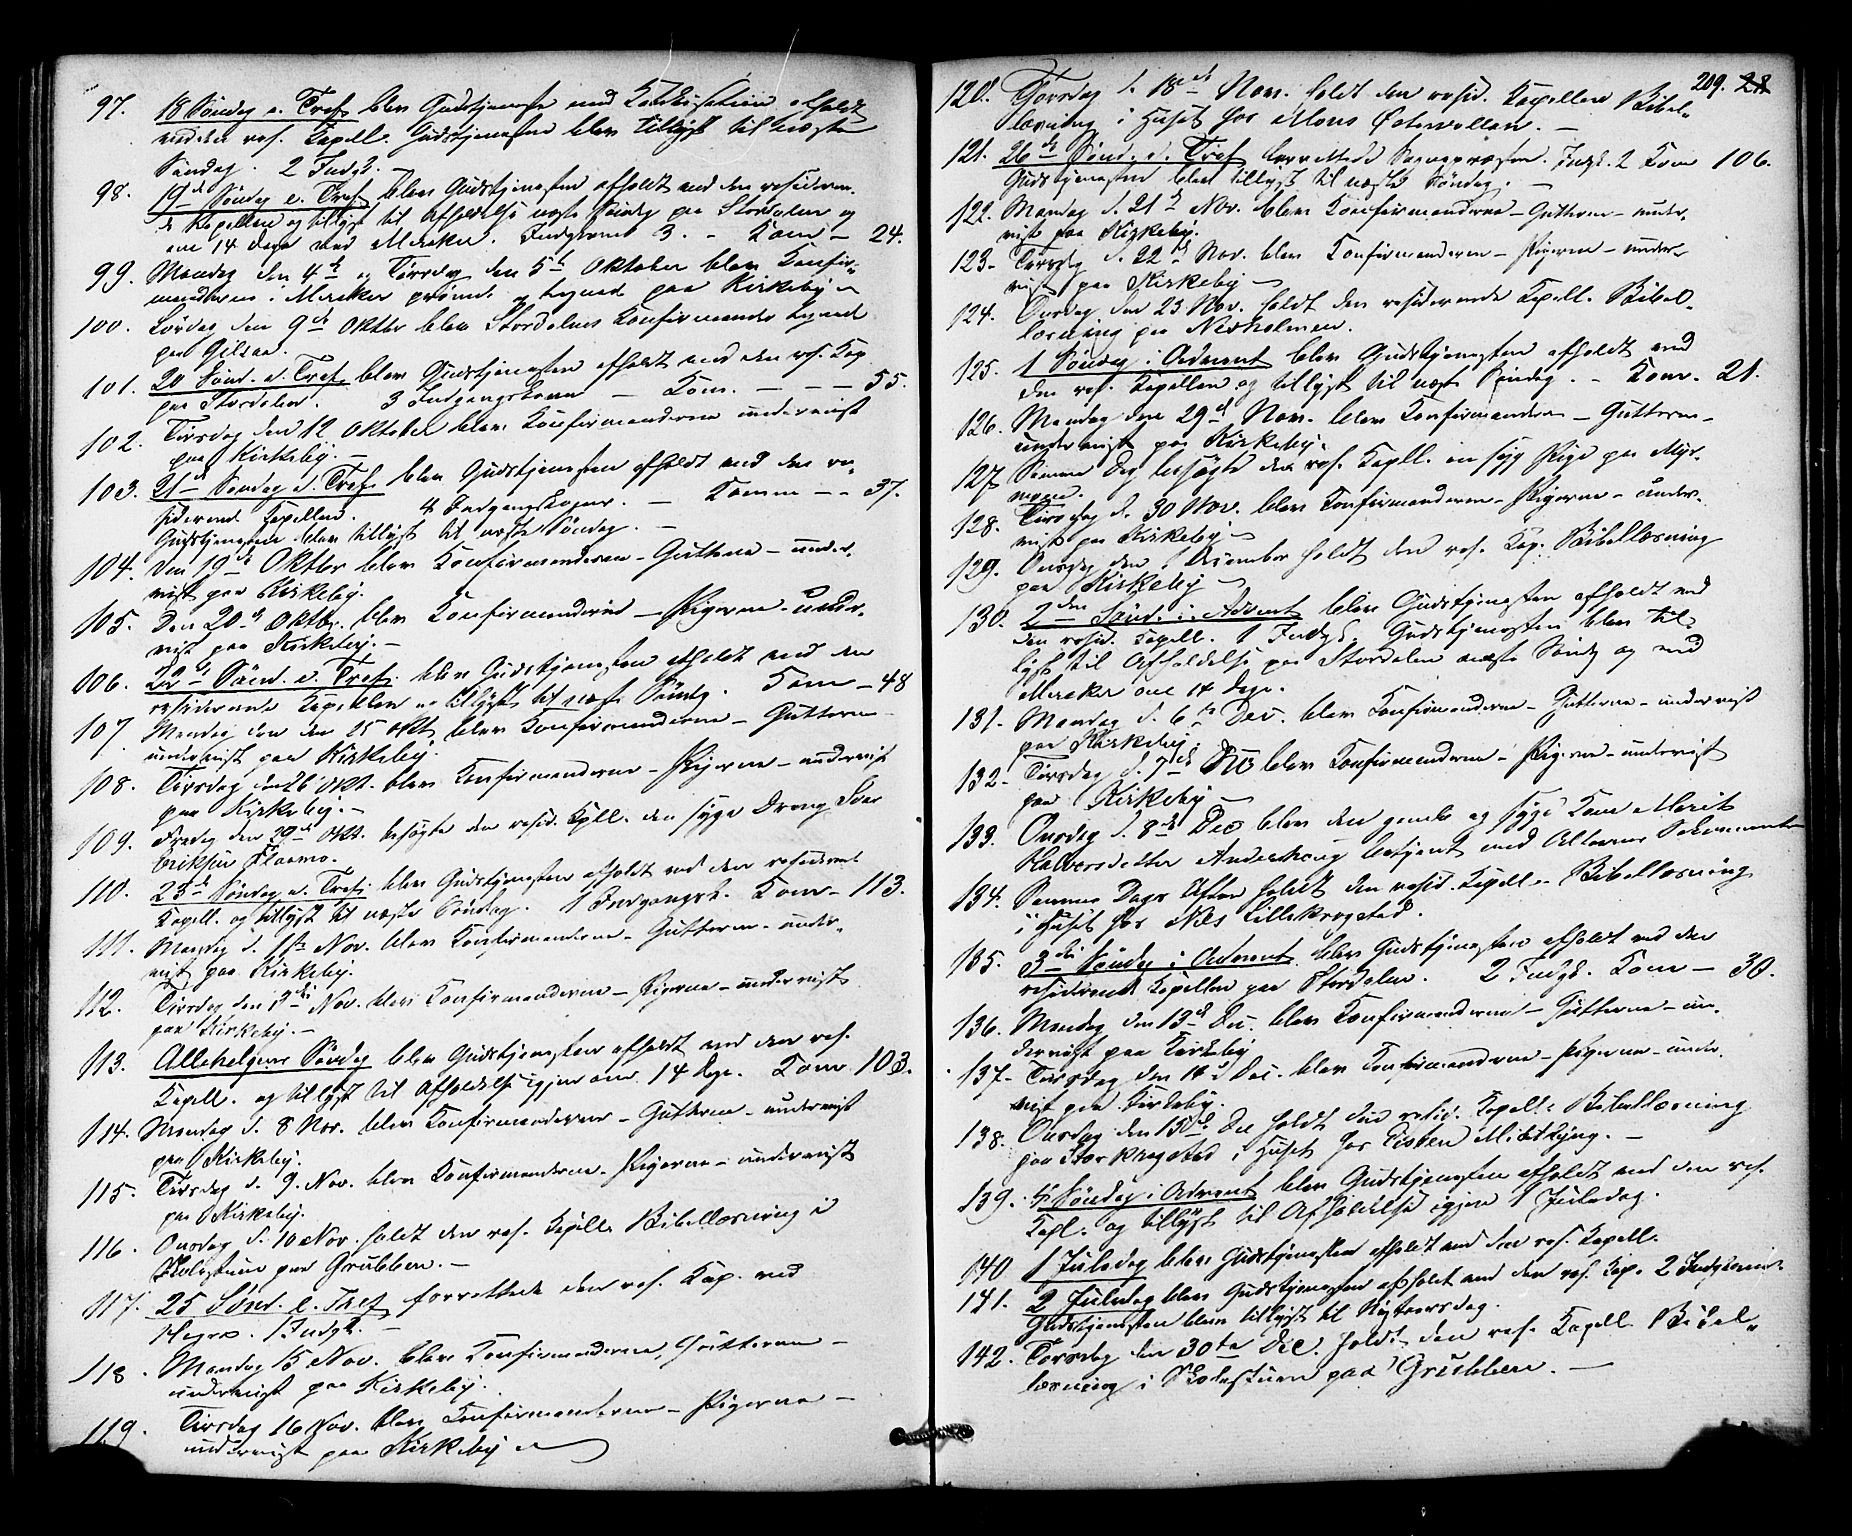 97. 18 Søndag e. Tref. blev Gudstjeneste med Katekisation afholdt
ved den res. Kapell. Gudstjenesten blev tillyst til næste
Søndag. 2 Indgk. –
98. 19de Søndag e. Tref. blev Gudstjenesten afholdt ved den resideren-
de Kapellan og tillyst til Afholdelse næste Søndag paa Stordalen og
om 14 dage ved Meraker. Indgkoner 3. – Kom – 24.
99. Mandag den 4de og Tirsdag den 5te Oktober blev Konfir-
manderne i Meraker prøvede og tegned paa Kirkeby –
100. Lørdag den 9de Oktbr blev Stordalens Konfirmander tegned
paa Gilsaa.
101. 20 Sønd. e. Tref. blev Gudstjenesten afholdt ved den res. Kap
paa Stordalen. 3 Indgangskoner – Kom. – – – 55.
102. Tirsdag den 12 Oktober blev Konfirmanderne undervist
paa Kirkeby. –
103. 21de Søndag e. Tref. blev Gudstjenesten afholdt ved den re-
siderende Kapellan. 4 Indgangskoner. – Komm – – 37.
Gudstjenesten blev tillyst til næste Søndag. –
104. Den 19de Oktbr blev Konfirmanderne – Gutterne – under-
vist paa Kirkeby.
105. Den 20de Oktbr. blev Konfirmanderne – Pigerne – under-
vist paa Kirkeby. –
106. 22de Sønd. e. Tref. blev Gudstjenesten afholdt ved den
residerende Kapellan og tillyst til næste Søndag. Kom – 48
107 Mandag den den 25 Okt blev Konfirmanderne – Gutterne –
undervist paa Kirkeby
108. Tirsdag den 26 Okt. blev Konfirmanderne – Pigerne – undervist
paa Kirkeby. –
109. Fredag den 29de Okt. besøgte den resid. Kpll. den syge Dreng Ivar
Eriksen Flaamo.
110. 23de Søndag e. Tref. blev Gudstjenesten afholdt ved den residerende
Kapell. og tillyst til næste Søndag. 1 Indgangsk. Kom – 113.
111. Mandag d. 1ste Nov. blev Konfirmanderne – Gutterne – under-
vist paa Kirkeby.
112. Tirsdag den 2de Nov. blev Konfirmanderne – Pigerne – undervist
paa Kirkeby. –
113. Allehelgens Søndag blev Gudstjenesten afholdt ved den res.
Kapell. og tillyst til Afholdelse igjen om 14 Dge. Kom 103.
114. Mandag d. 8 Nov. blev Konfirmanderne – Gutterne – undervist
paa Kirkeby.
115. Tirsdag d. 9. Nov. blev Konfirmanderne – Pigerne – undervist
paa Kirkeby.
116. Onsdag d. 10 Nov. holdt den res. Kapell. Bibellæsning i
Skolestuen paa Grubben. –
117. 25 Sønd. e. Tref forrettede den res. Kap. ved
Hegre. 1 Indgk. –
118. Mandag 15 Nov. blev Konfirmanderne, Gutterne –
undervist paa Kirkeby.
119. Tirsdag 16 Nov. blev Konfirmanderne – Pigerne –
undervist paa Kirkeby –
209. 28
120. Torsdag d. 18de Nov. holdt den resid. Kapellan Bibel-
læsning i Huset hos Mons Østervollen. –
121. 26de Sønd. e. Tref forrettede Sognepræsten. Indgk. 2 Kom 106.
Gudstjenesten blev tillyst til næste Søndag. –
122. Mandag d. 21de Nov. blev Konfirmanderne – Gutterne – under-
vist paa Kirkeby.
123 – Tirsdg d. 22de Nov. blev Konfirmanderne – Pigerne – under-
vist paa Kirkeby –
124. Onsdag den 23 Nov. holdt den residerende Kapell. Bibel-
læsning paa Nesholmen.
125. 1 Søndag i Advent blev Gudstjenesten afholdt ved
den res. Kapellan og tillyst til næste Søndag. – Kom. 21.
126. Mandag den 29de Nov. blev Konfirmanderne – Gutterne –
undervist paa Kirkeby.
127 Samme Dag besøgte den res. Kapll. en syg Pige paa Myr-
moen.
128. Tirsdag d. 30 Nov. blev Konfirmanderne – Pigerne – under-
vist paa Kirkeby –
129. Onsdag den 1 December holdt den res. Kap. Bibellæsning
paa Kirkeby –
130. 2den Sønd. i Advent blev Gudstjenesten afholdt ved
den resid. Kapell. 1 Indgk. Gudstjenesten blev til-
lyst til Afholdelse paa Stordalen næste Søndg og ved
Meraker om 14 Dage.
131. Mandag d. 6te Dec. blev Konfirmanderne – Gutterne – undervist
paa Kirkeby.
132. Tirsdag d. 7de Dec blev Konfirmanderne – Pigerne – undervist
paa Kirkeby –
133. Onsdag d. 8de Dec blev den gamle og syge Kone Marit
Halvorsdatter Anderhaug betjent med Alterens Sakramente
134. Samme Dags Aften holdt den resid. Kapell. Bibellæsning
i Huset hos Nils Lillekrogstad.
135. 3die Søndag i Advent blev Gudstjenesten afholdt ved den
residerende Kapellan paa Stordalen. 2 Indgk. Kom – 30.
136. Mandag den 13de Dec. blev Konfirmanderne – Gutterne – un-
dervist paa Kirkeby
137 – Tirsdag den 14de Dec. blev Konfirmanderne – Pigerne – under-
vist paa Kirkeby.
138. Onsdag den 15de Dec holdt den resid. Kapell. Bibellæsning
paa Storkrogstad i Huset hos Eisten . –
139. 4 Søndag i Advent blev Gudstjenesten afholdt ved den res.
Kapl. og tillyst til Afholdelse igjen 1 Juledag.
140 1 Juledag blev Gudstjenesten afholdt ved den res. Kapell.
141. 2 Juledag blev Gudstjenesten afholdt ved den res. Kap. 2 Indgkoner
Gudstjenesten blev tillyst til Nytaarsdag.
142. Torsdag den 30te Dec. holdt den res. Kapell. Bibel-
læsning i Skolestuen paa Grubben. –